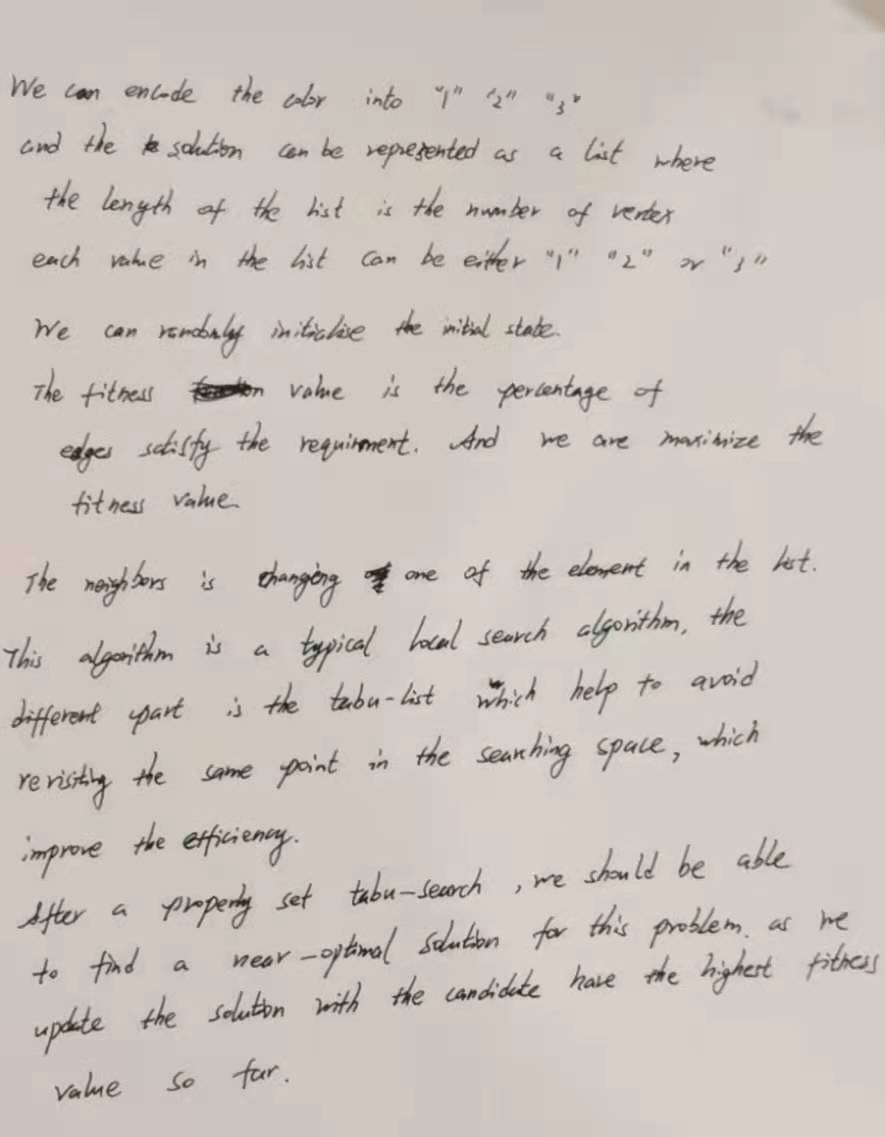 We can encode the color into "1" "2" "3"
and the solution can be represented as a list where
the length of the list is the number of vertex
each value in the list can be either "1" "2" or "3"
We can randomly initialise the initial state.
The fitness value is the percentage of
edges satisfy the requirment. And we are maximize the
fitness value.
The neighbors is changing one of the element in the list.
This algorithm is a typical local search algorithm, the
different part is the tabu-list which help to avoid
revisiting the same point in the searching space, which
improve the efficiency.
After a properly set tabu-search, we should be able
to find a near-optimal solution for this problem. as we
update the solution with the candidate have the highest fitness
value so far.